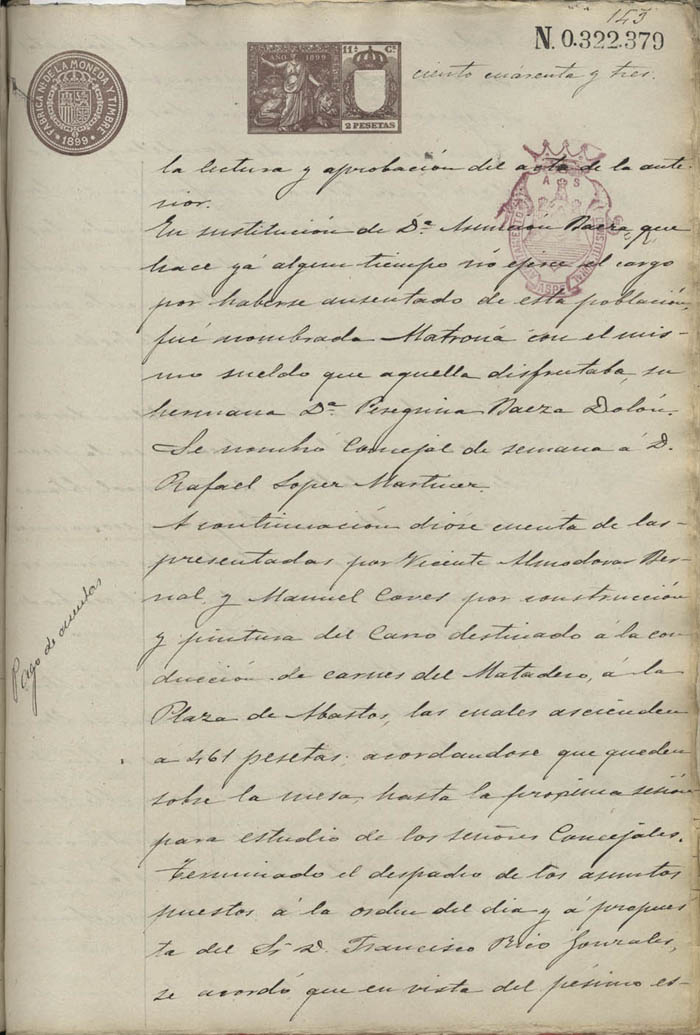 143
N. 0.322.379
FABRICA NL DE LA MONEDA Y TIMBRE
1899
AÑO 1899
11ª Cª
2 PESETAS
ciento cuarenta y tres.
A S
AYUNTAMIENTO CONSTITUCIONAL
ASPE
la lectura y aprobación del acta de la ante-
rior.
En sustitución de Dª Asunción Baeza que
hace yá algun tiempo nó ejerce el cargo
por haberse ausentado de esta población,
fué nombrada Matrona con el mis-
mo sueldo que aquella disfrutaba, su
hermana Dª Peregrina Baeza Dolón.
Se nombró Concejal de semana á D.
Rafael Lopez Martinez.
A continuación dióse cuenta de las
presentadas por Vicente Almodovar Ber-
nal, y Manuel Caves por construcción
y pintura del Carro destinado á la con
ducción de carnes del Matadero, á la
Plaza de Abastos, las cuales ascienden
á 461 pesetas; acordandose que queden
sobre la mesa, hasta la proxima sesión
para estudio de los señores Concejales.
Terminado el despacho de los asuntos
puestos á la orden del dia y á propues
ta del Sr. D. Francisco Rico Gonzales,
se acordó que en vista del pésimo es-
Pago de cuentas